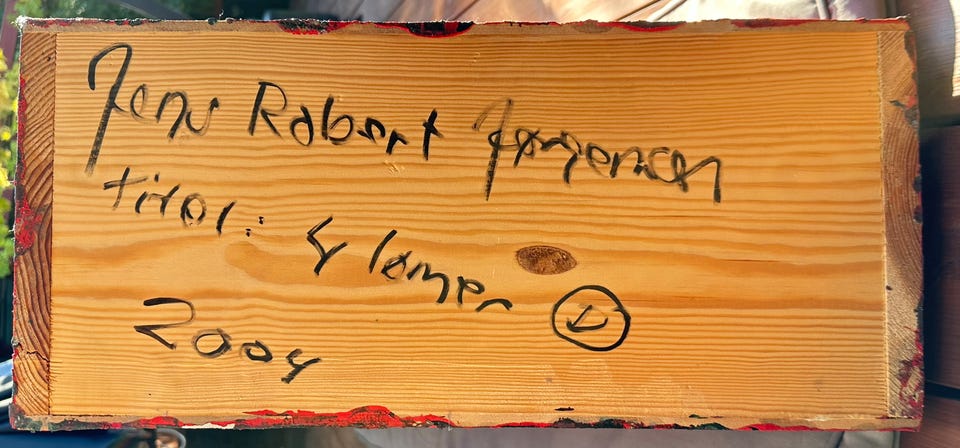 Jens Robert Jørgensen
titel: 4 lømer
2004